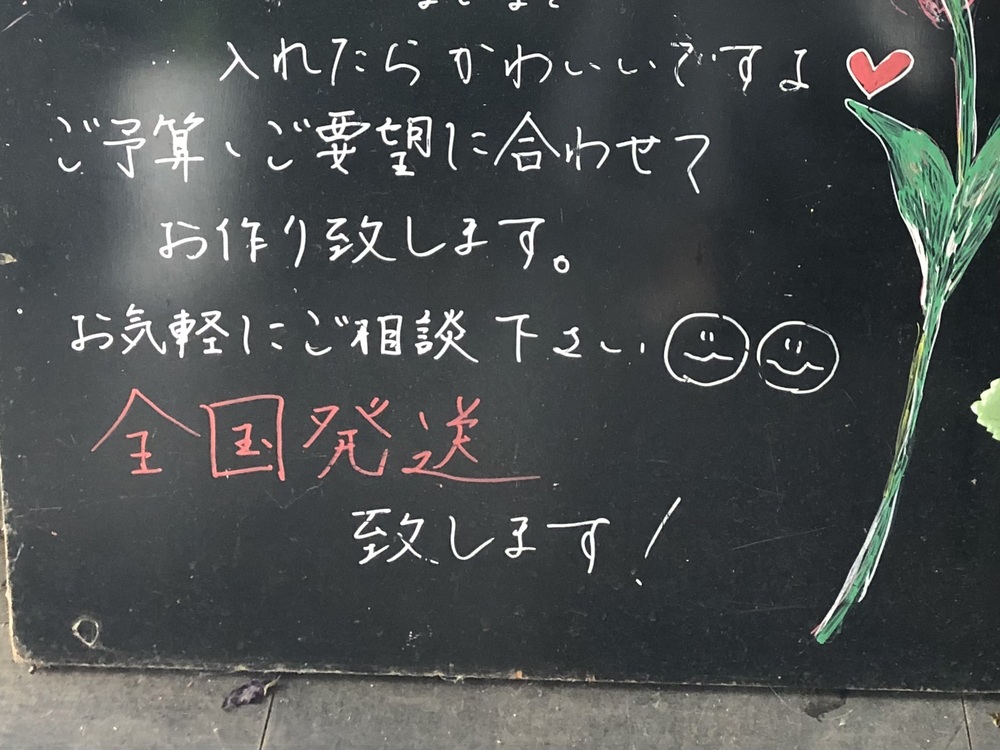 入れたらかわいいですよ
ご予算、ご要望に合わせて
お作り致します。
お気軽にご相談下さい
全国発送
致します!